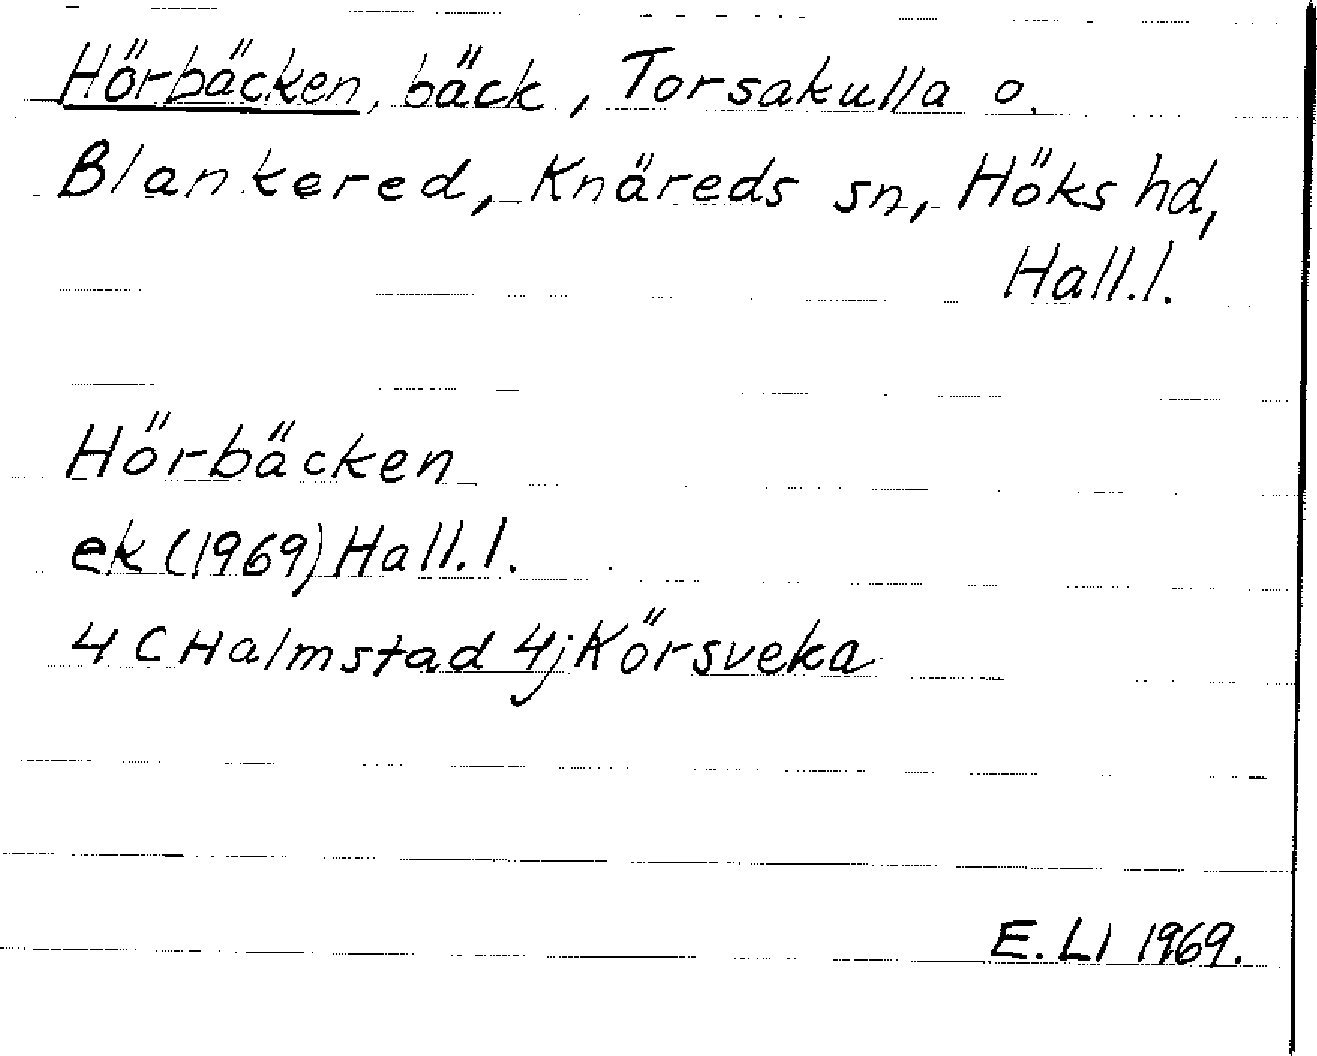 Hörbäcken, bäck, Torsakulla o.
Blankered, Knäreds sn, Höks hd,
Hall.l.
Hörbäcken
ek (1969) Hall.l.
4 C Halmstad 4j Körsveka
E. LI 1969.